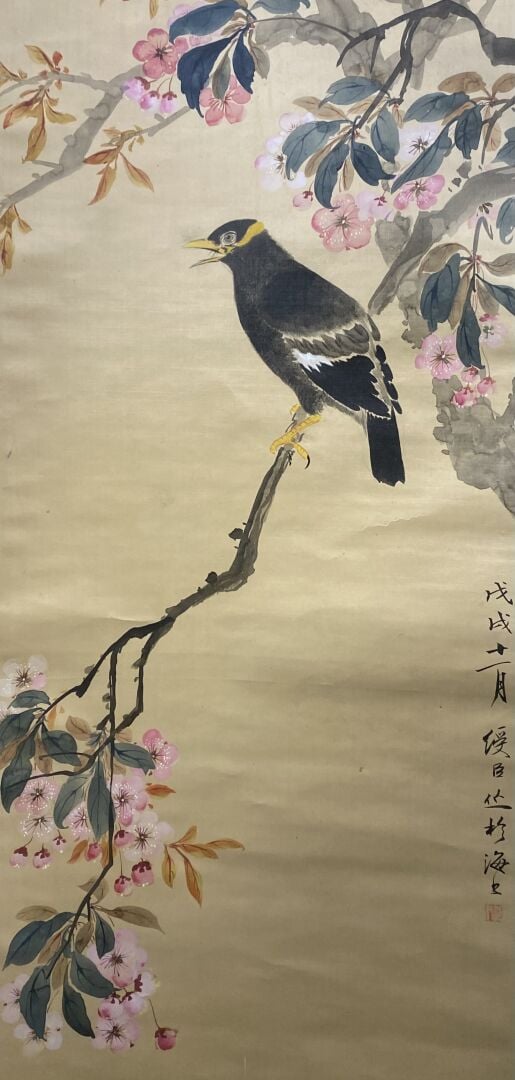 戊戌十一月
绶臣作於海上